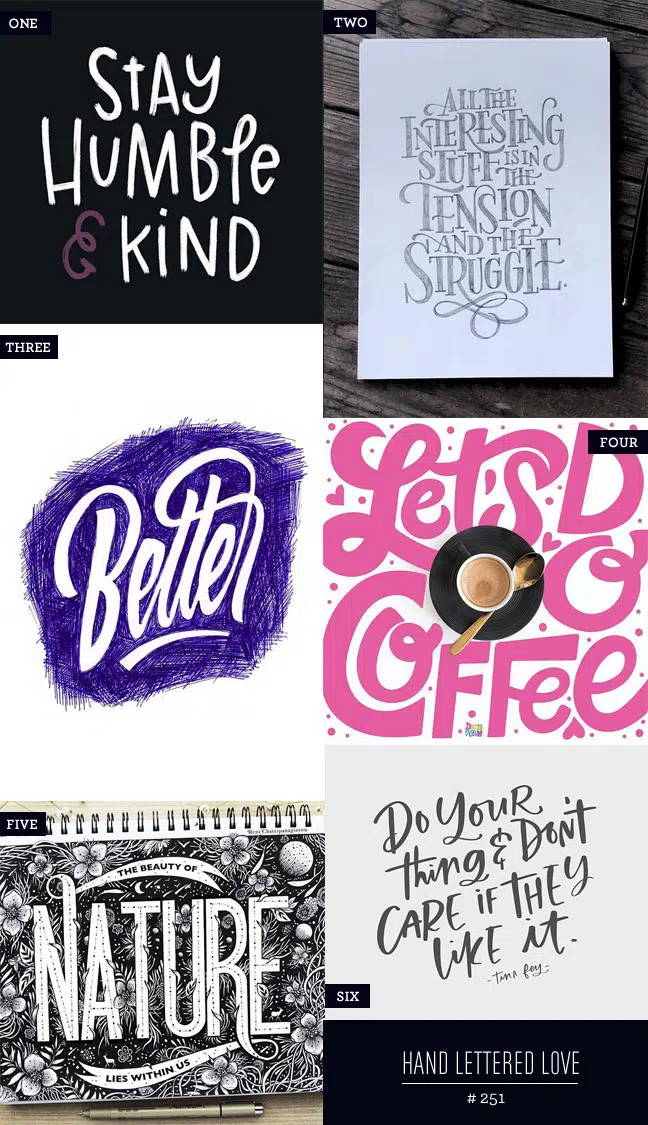 ONE
STAY
HUMBLE
& KIND
TWO
ALL THE
INTERESTING
STUFF IS IN
THE
TENSION
AND THE
STRUGGLE.
THREE
Better
FOUR
Let's D
O
COFFee
FIVE
Meni Chatzipanagiotou
THE BEAUTY OF
NATURE
LIES WITHIN US
DO YOUR
thing & DON'T
CARE iF THEY
LIKE it.
-tina fey-
SIX
HAND LETTERED LOVE
# 251